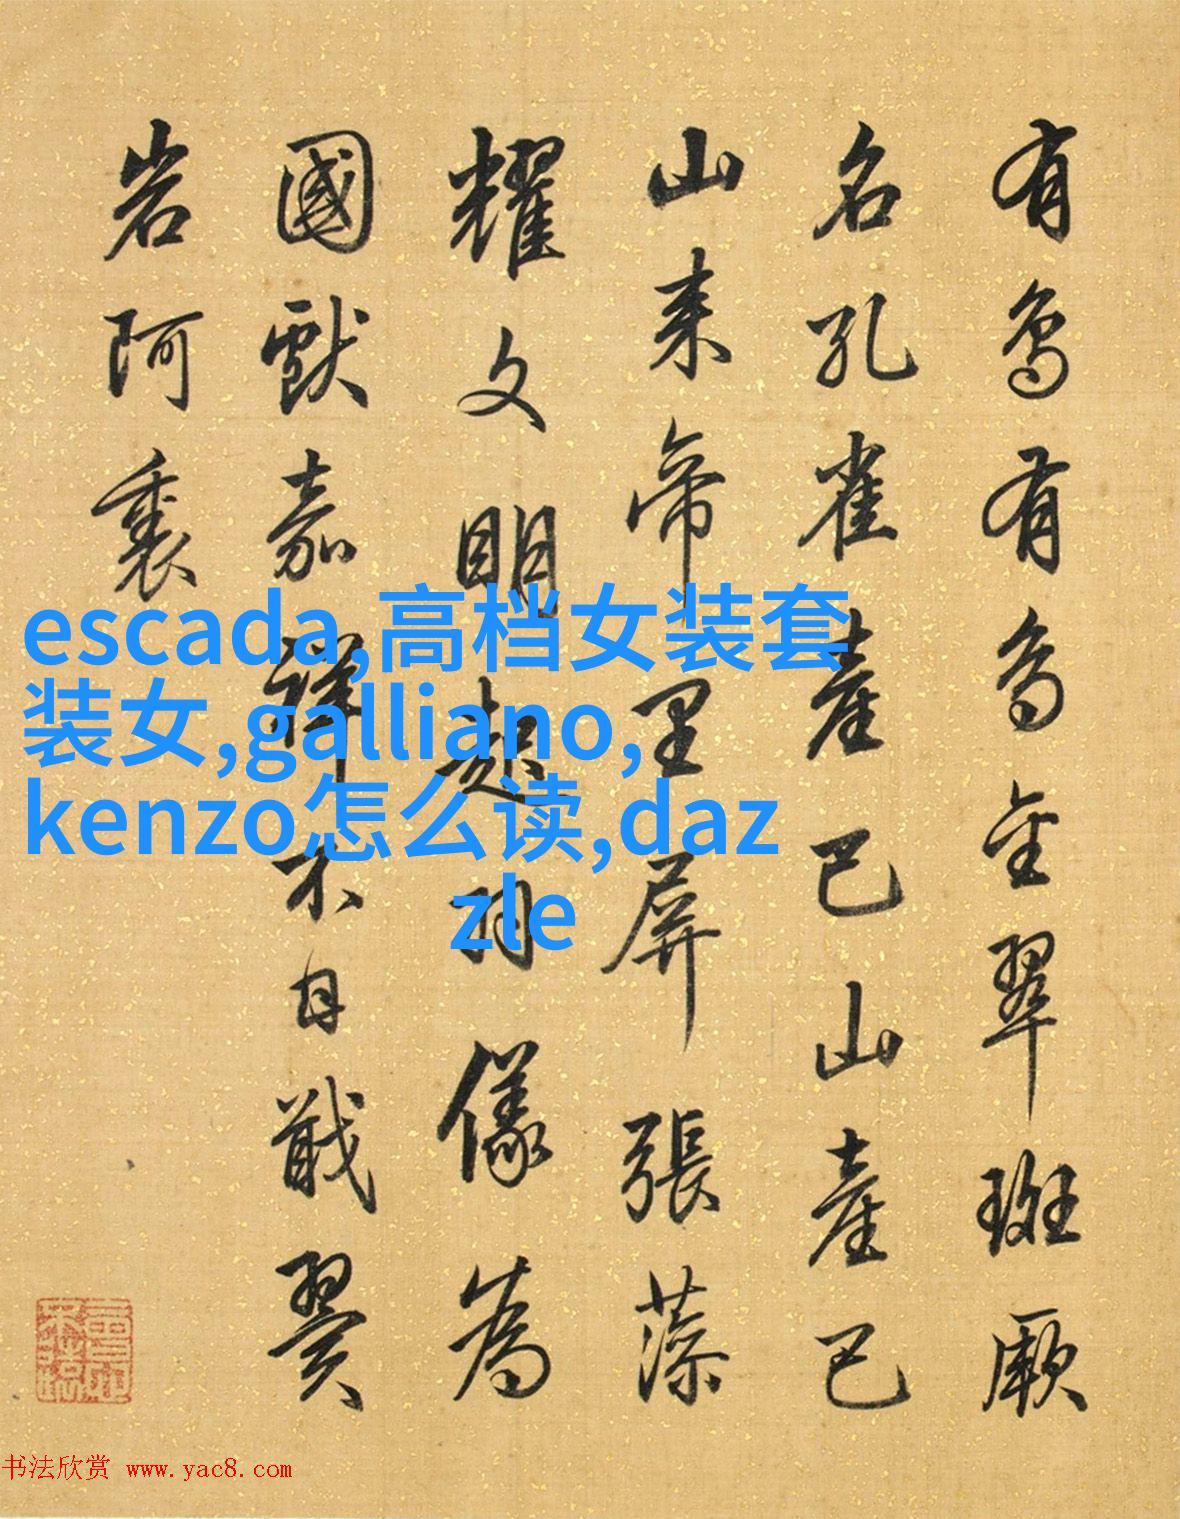 有鳥有鳥金翠斑厥
名孔雀產巴山產巴
山来帝里屏張藻
耀文明起羽儀為
國獻嘉祥不自戢翼
岩阿裏
escada,高档女装套
装女,galliano,
kenzo怎么读,daz
zle
书法欣赏 www.yac8.com